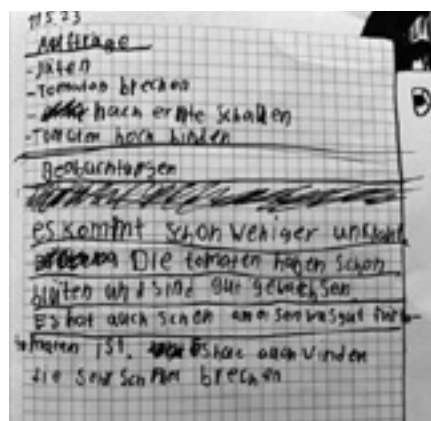 11.5.23
Aufträge
- Jäten
- Tomaten brechen
- nach ernte Schauen
- Tomaten hoch binden
Beobachtungen
es kommt schon weniger unkraut
Die tomaten haben schon
blüten und sind gut gewachsen
Es hat auch schon ameisen was gut für
tomaten ist. Es hat auch Winden
die sehr schnell brechen